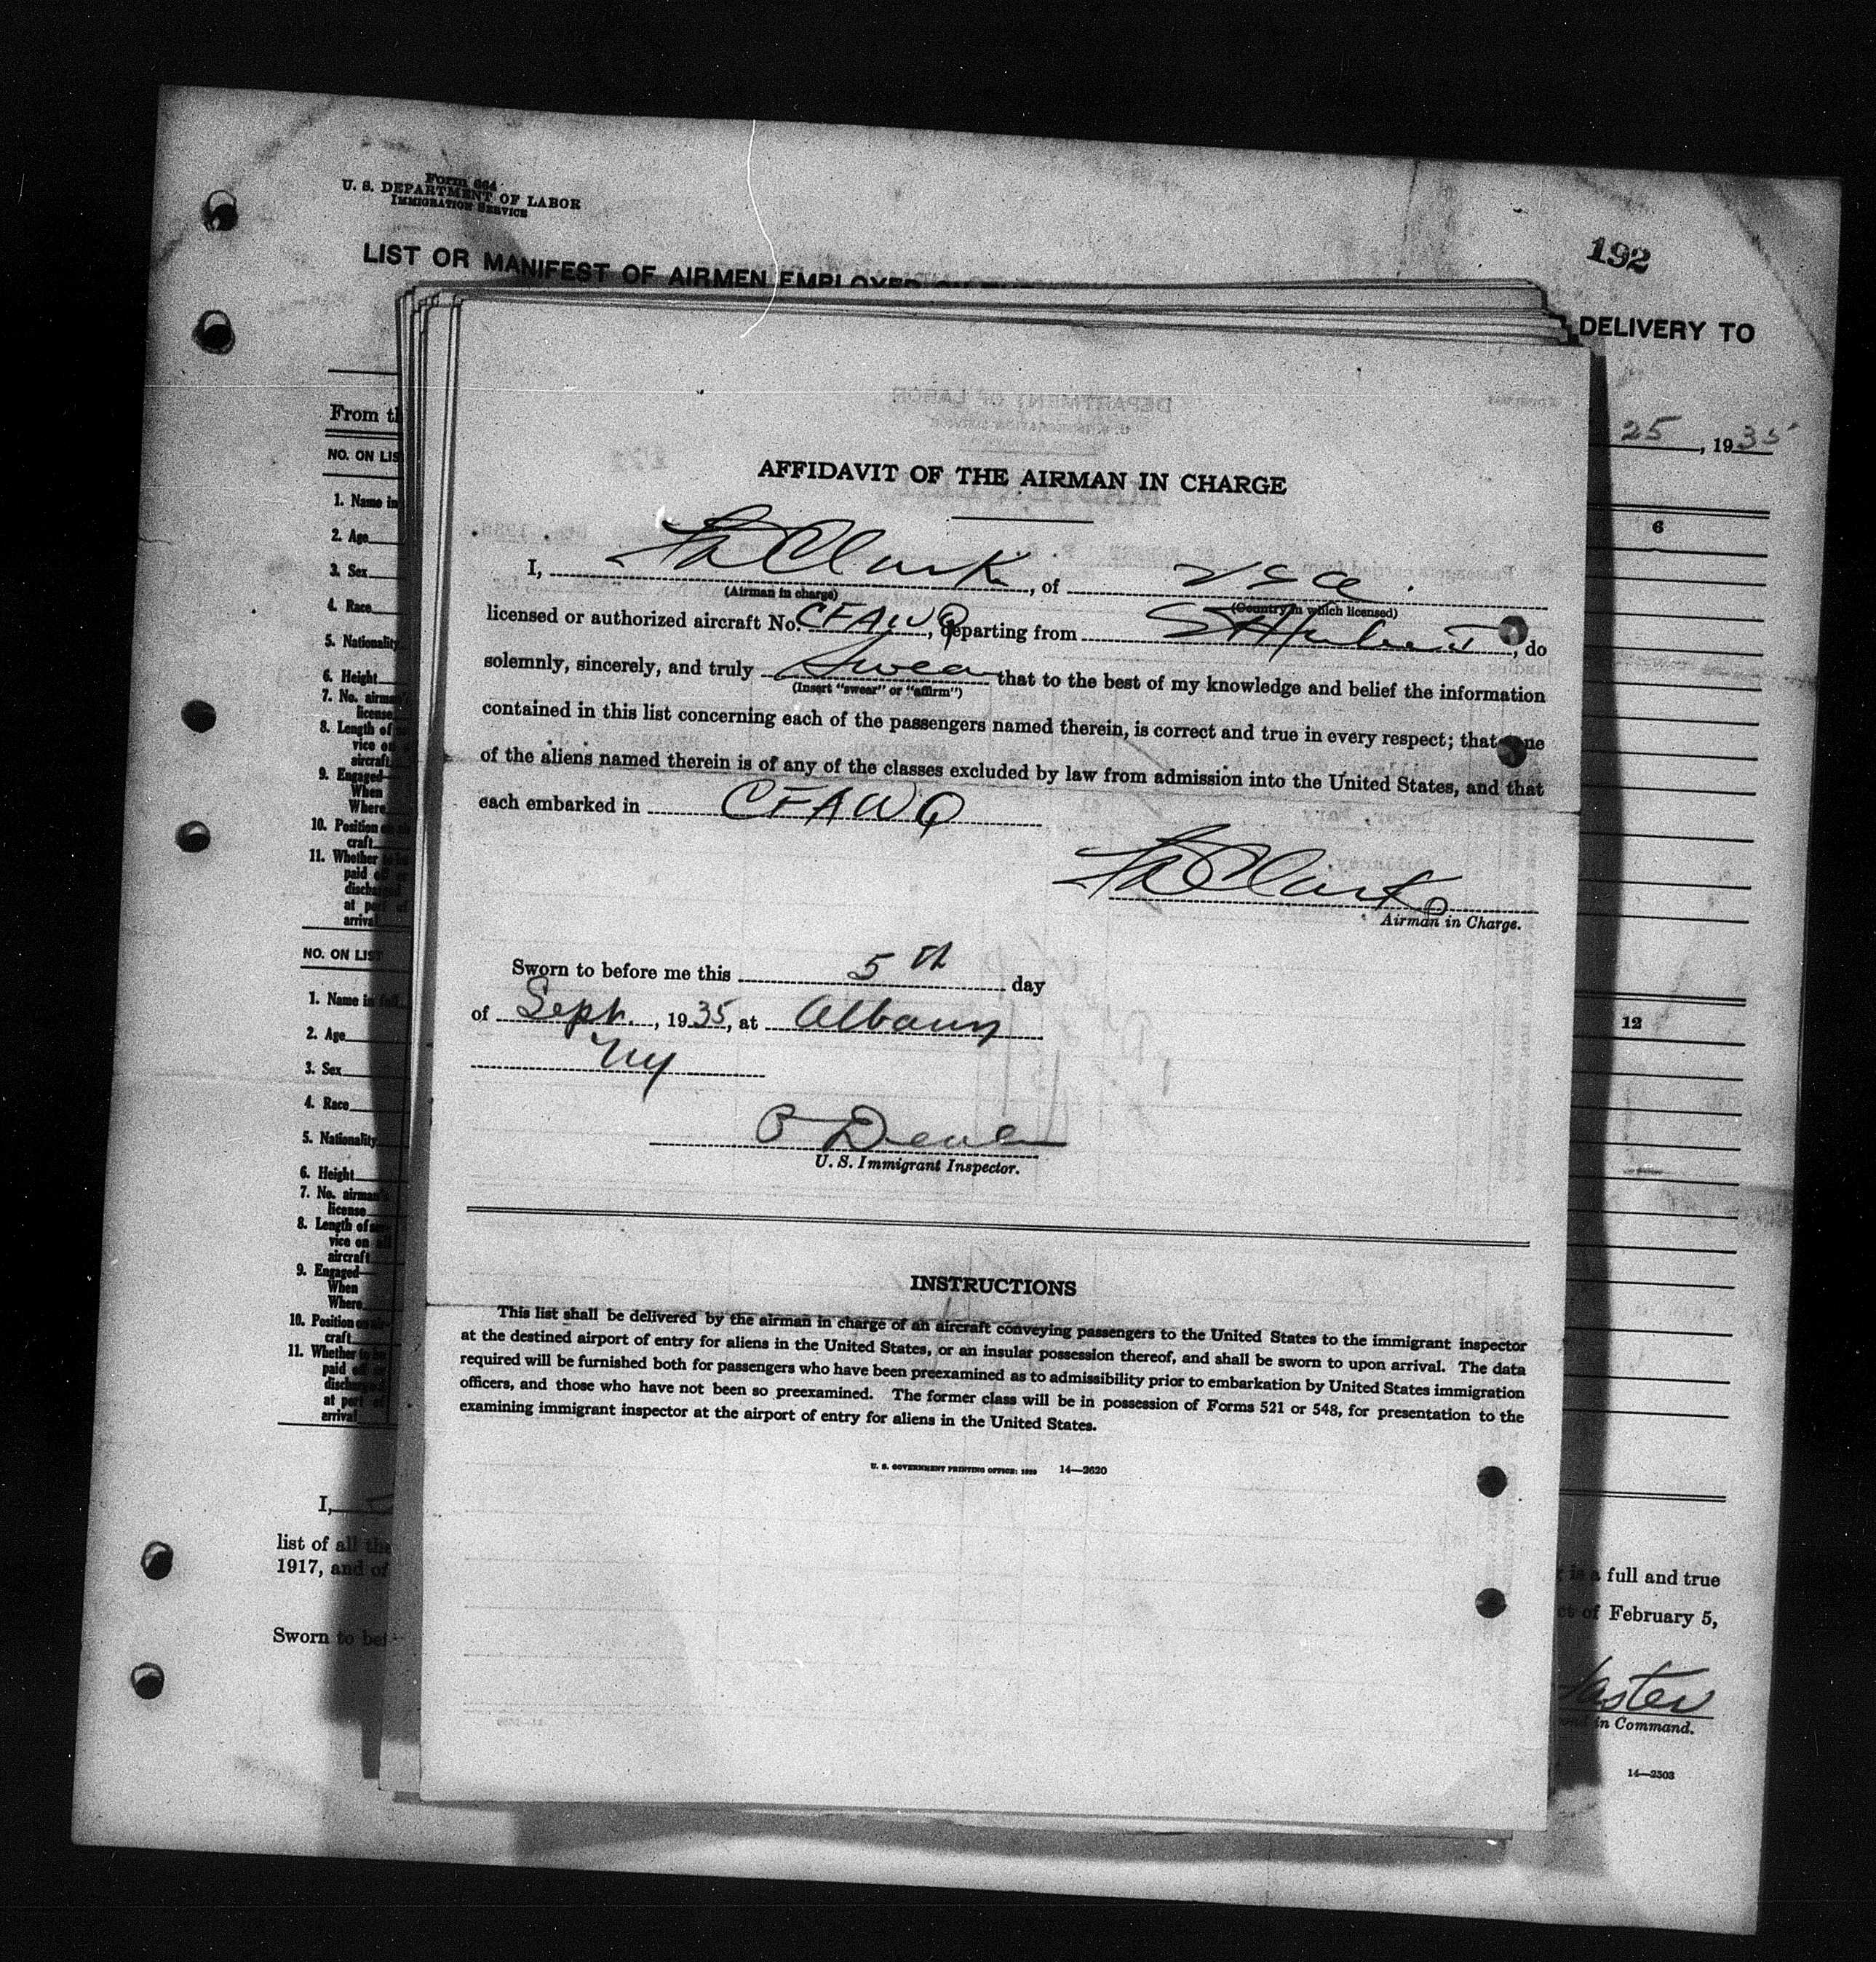 Form 664
U. S. DEPARTMENT OF LABOR
IMMIGRATION SERVICE
192
LIST OR MANIFEST OF AIRMEN EMPLOYED
DELIVERY TO
From th
25, 1935
NO. ON LIS
6
1. Name in
2. Age
3. Sex
4. Race
5. Nationality
6. Height
7. No. airman's
license
8. Length of
vice on
aircraft
9. Engaged—
When
Where
10. Position on
craft
11. Whether to be
paid off or
discharged
at port of
arrival
NO. ON LIST
12
1. Name in full
2. Age
3. Sex
4. Race
5. Nationality
6. Height
7. No. airman's
license
8. Length of
vice on all
aircraft
9. Engaged—
When
Where
10. Position on
craft
11. Whether to be
paid off or
discharged
at port of
arrival
I,
list of all the
1917, and of
Sworn to bef
is a full and true
ct of February 5,
in Command.
14—2503
AFFIDAVIT OF THE AIRMAN IN CHARGE
I, Clark, of USA.
(Airman in charge) (Country in which licensed)
licensed or authorized aircraft No. CFAWQ, departing from St Hubert, do
solemnly, sincerely, and truly Swear that to the best of my knowledge and belief the information
(Insert "swear" or "affirm")
contained in this list concerning each of the passengers named therein, is correct and true in every respect; that none
of the aliens named therein is of any of the classes excluded by law from admission into the United States, and that
each embarked in CFAWQ
Clark
Airman in Charge.
Sworn to before me this 5th day
of Sept., 1935, at Albany
NY
U. S. Immigrant Inspector.
INSTRUCTIONS
This list shall be delivered by the airman in charge of an aircraft conveying passengers to the United States to the immigrant inspector
at the destined airport of entry for aliens in the United States, or an insular possession thereof, and shall be sworn to upon arrival. The data
required will be furnished both for passengers who have been preexamined as to admissibility prior to embarkation by United States immigration
officers, and those who have not been so preexamined. The former class will be in possession of Forms 521 or 548, for presentation to the
examining immigrant inspector at the airport of entry for aliens in the United States.
U. S. GOVERNMENT PRINTING OFFICE: 1929 14—2620